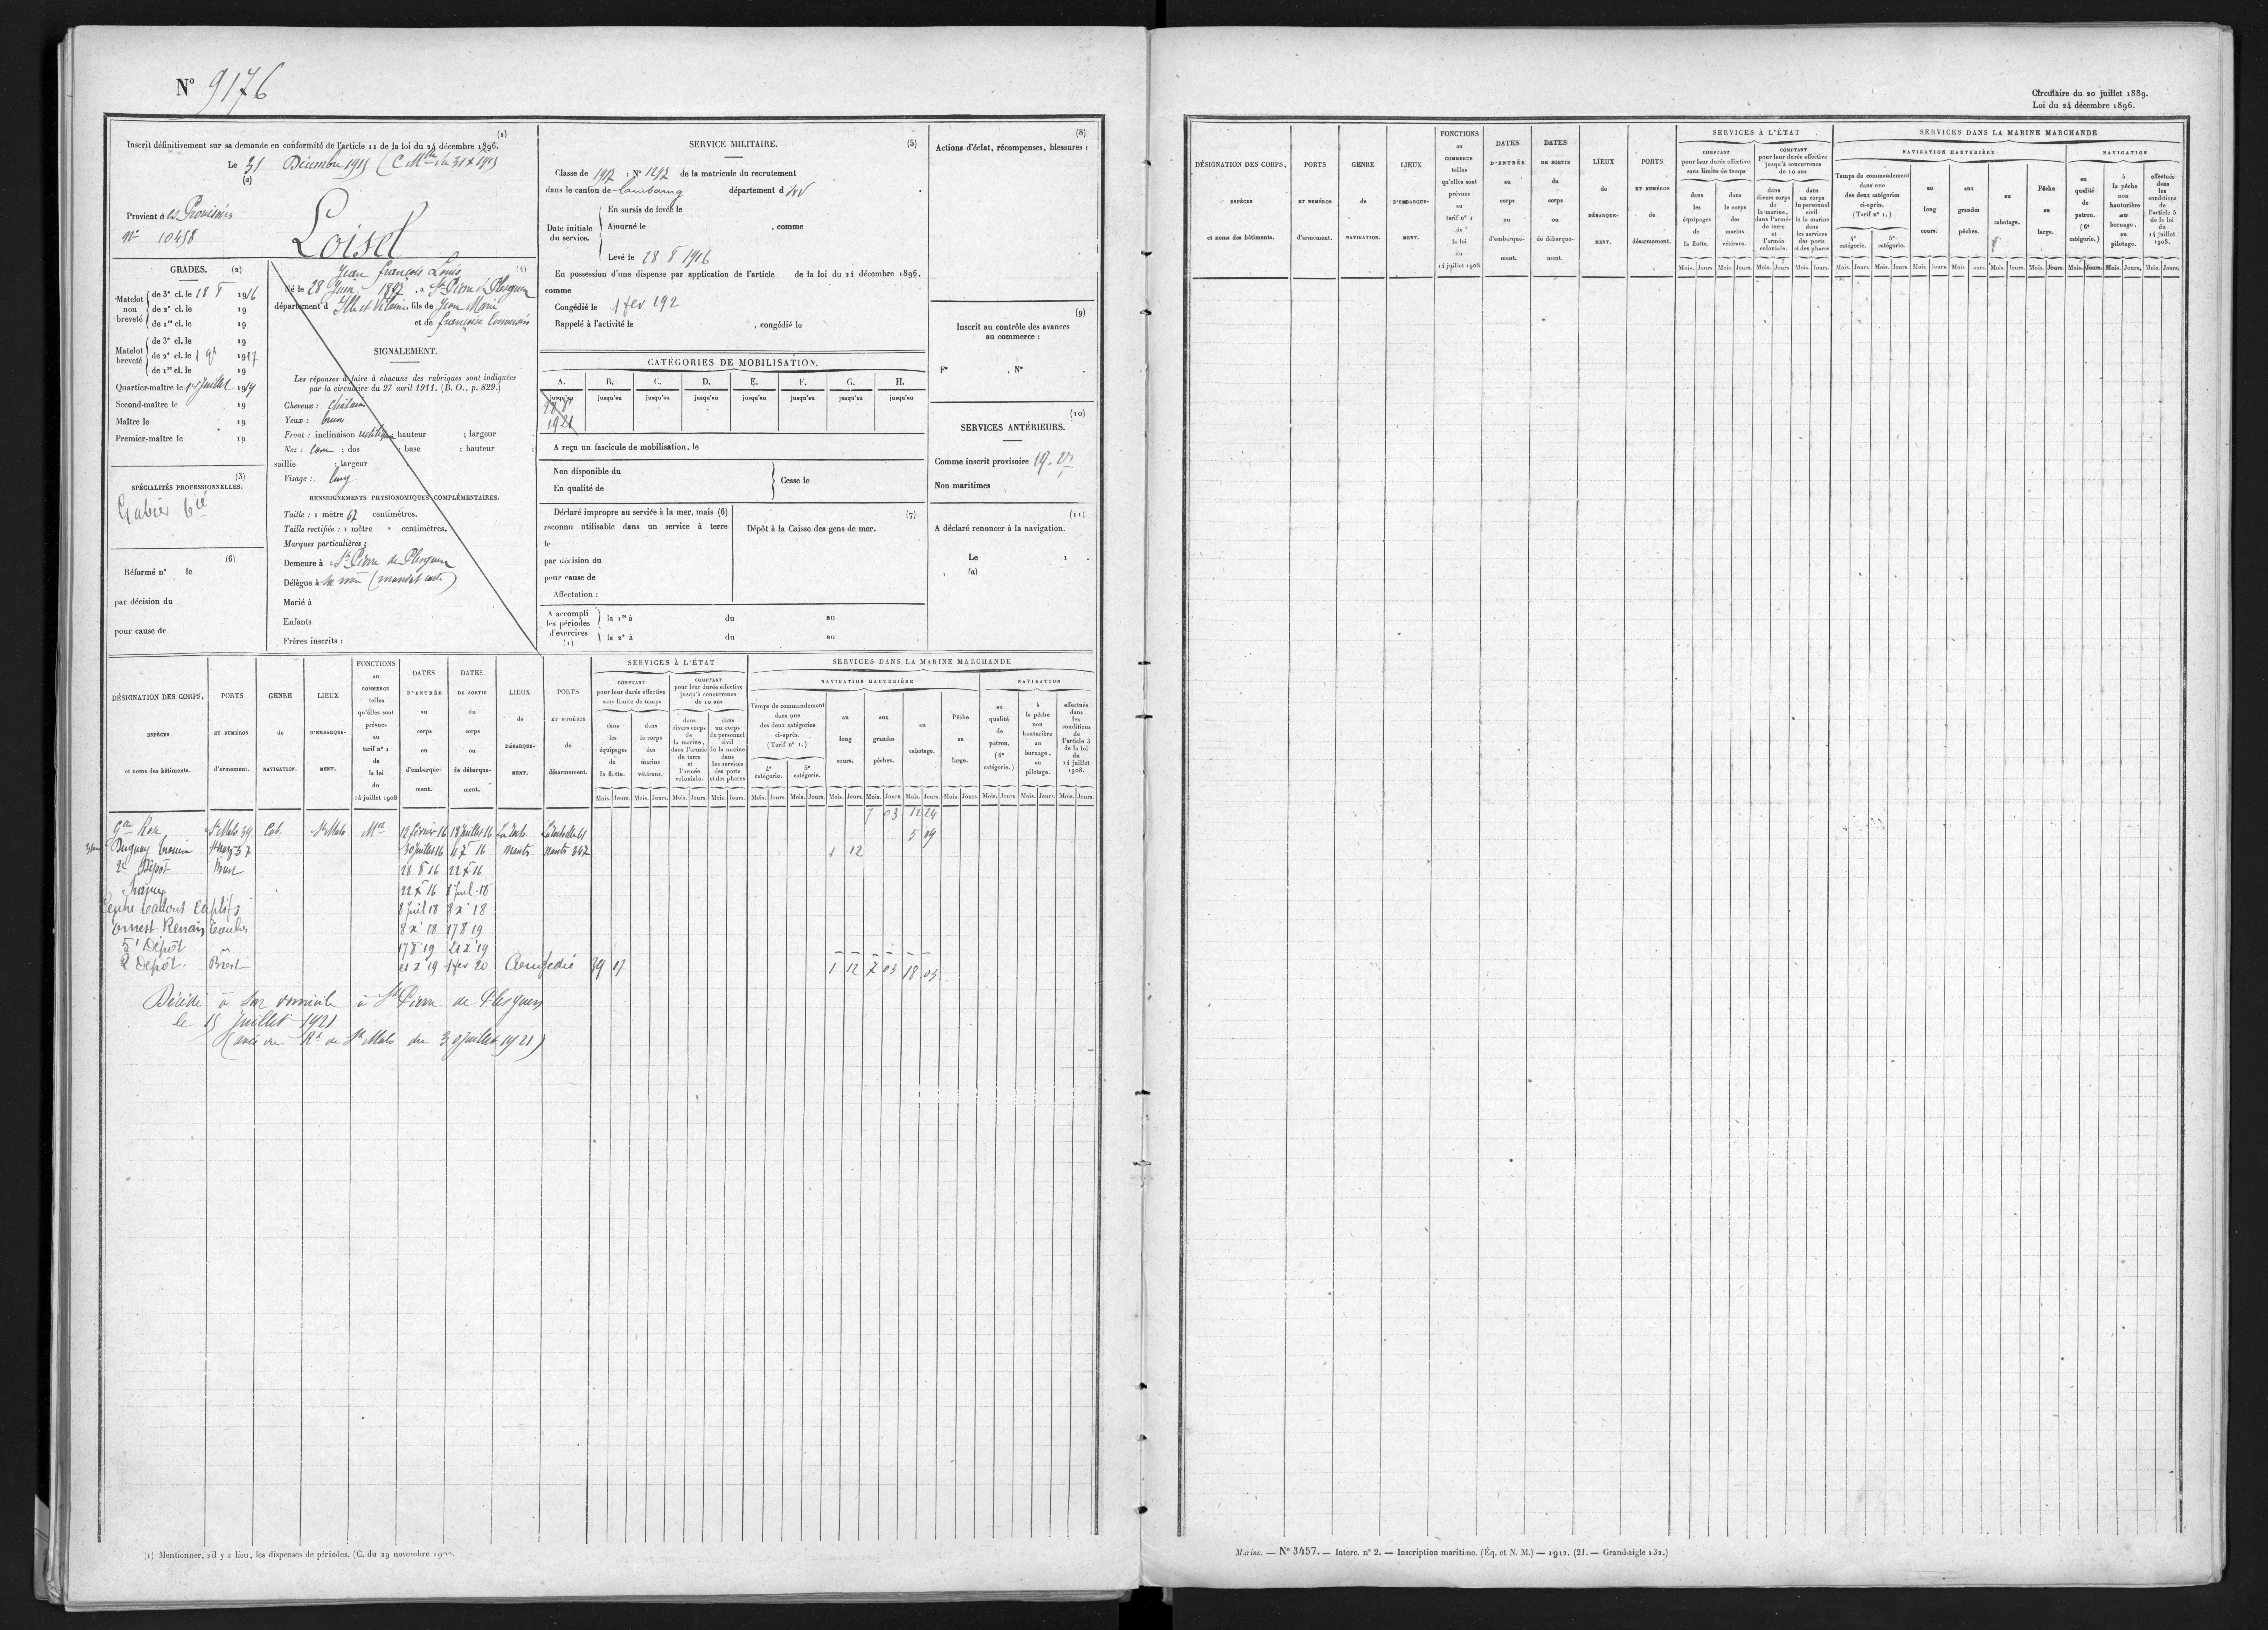 N° 9176
(1)
Inscrit définitivement sur sa demande en conformité de l'article 11 de la loi du 24 décembre 1896.
Le 31 Décembre 1915
(a)
Provient des Provisoires
N° 10458
Loisel
Jean François Louis
(4)
Né le 28 Juin 1897, à St Pierre de Plesguen
département d'Ille et Vilaine, fils de Jean Marie
et de Françoise
GRADES. (2)
Matelot non breveté
de 3e cl. le 28 8 1916
de 2e cl. le 19
de 1re cl. le 19
Matelot breveté
de 3e cl. le 19
de 2e cl. le 1 1917
de 1re cl. le 19
Quartier-maître le Juillet 1919
Second-maître le 19
Maître le 19
Premier-maître le 19
(3)
SPÉCIALITÉS PROFESSIONNELLES.
Gabier bté
(6)
Réformé n° le
par décision du
pour cause de
SIGNALEMENT.
Les réponses à faire à chacune des rubriques sont indiquées
par la circulaire du 27 avril 1911. (B. O., p. 829.)
Cheveux : châtain
Yeux : bruns
Front : inclinaison hauteur ; largeur
Nez : cave ; dos ; base ; hauteur ;
saillie ; largeur
Visage : long
RENSEIGNEMENTS PHYSIONOMIQUES COMPLÉMENTAIRES.
Taille : 1 mètre 67 centimètres.
Taille rectifiée : 1 mètre " centimètres.
Marques particulières :
Demeure à St Pierre de Plesguen
Délègue à sa mère (mandat carte)
Marié à
Enfants
Frères inscrits :
SERVICE MILITAIRE. (5)
Classe de 1917 : N° 1297 de la matricule du recrutement
dans le canton de Combourg département d I&V
Date initiale du service.
En sursis de levée le
Ajourné le , comme
Levé le 28 8 1916
En possession d'une dispense par application de l'article de la loi du 24 décembre 1896.
comme
Congédié le 1 fev 192
Rappelé à l'activité le , congédié le
CATÉGORIES DE MOBILISATION.
A. B. C. D. E. F. G. H.
jusqu'au jusqu'au jusqu'au jusqu'au jusqu'au jusqu'au jusqu'au jusqu'au
28 8
1921
A reçu un fascicule de mobilisation, le
Non disponible du
En qualité de
Cesse le
Déclaré impropre au service à la mer, mais (6)
reconnu utilisable dans un service à terre
le
par décision du
pour cause de
Affectation :
(7)
Dépôt à la Caisse des gens de mer.
A accompli les périodes d'exercices (1)
la 1re à du au
la 2e à du au
(8)
Actions d'éclat, récompenses, blessures :
(9)
Inscrit au contrôle des avances
au commerce :
F° . N° .
(10)
SERVICES ANTÉRIEURS.
Comme inscrit provisoire
Non maritimes
(11)
A déclaré renoncer à la navigation.
Le
(a)
DÉSIGNATION DES CORPS, ESPÈCES et noms des bâtiments.
PORTS ET NUMÉROS d'armement.
GENRE de NAVIGATION.
LIEUX D'EMBARQUEMENT.
FONCTIONS au COMMERCE telles qu'elles sont prévues au tarif n° 1 de la loi du 14 juillet 1908
DATES D'ENTRÉE au corps ou d'embarquement.
DATES DE SORTIE du corps ou de débarquement.
LIEUX de DÉBARQUEMENT.
PORTS ET NUMÉROS de désarmement.
SERVICES À L'ÉTAT
COMPTANT pour leur durée effective sans limite de temps
dans les équipages de la flotte.
dans le corps des marins vétérans.
COMPTANT pour leur durée effective jusqu'à concurrence de 10 ans
dans divers corps de la marine, dans l'armée de terre et l'armée coloniale.
dans un corps du personnel civil de la marine dans les services des ports et des phares
SERVICES DANS LA MARINE MARCHANDE
NAVIGATION HAUTURIÈRE
Temps de commandement dans une des deux catégories ci-après. (Tarif n° 1.)
4e catégorie. 5e catégorie.
au long cours.
aux grandes pêches.
au cabotage.
Pêche au large.
NAVIGATION
en qualité de patron. (6e catégorie.)
à la pêche non hauturière au bornage, au pilotage.
effectuée dans les conditions de l'article 5 de la loi du 14 juillet 1908.
Mois. Jours.
7 03 12 24
St Malo 39 Cab. St Malo 12 février 16 18 juillet 16 5 09
Duguay Trouin 30 Juillet 16 Nantes Nantes 367 1 12
2e Dépôt Brest 28 8 16 22 X 16
22 X 16 8 Juil 18
Centre Ballons Captifs 8 Juil 18 8 X 18
Ernest Renan 8 X 18 17 8 19
5e Dépôt 17 8 19 21 X 19
2 Dépôt. Brest 21 X 19 1 fev 20 Congédié 39 17 1 12 7 03 18 03
Décédé à son domicile à St Pierre de Plesguen
le 15 Juillet 1921
(avis du de St Malo du 30 Juillet 1921)
(1) Mentionner, s'il y a lieu, les dispenses de périodes. (C. du 29 novembre
Circulaire du 20 juillet 1889.
Loi du 24 décembre 1896.
DÉSIGNATION DES CORPS, ESPÈCES et noms des bâtiments.
PORTS ET NUMÉROS d'armement.
GENRE de NAVIGATION.
LIEUX D'EMBARQUEMENT.
FONCTIONS au COMMERCE telles qu'elles sont prévues au tarif n° 1 de la loi du 14 juillet 1908
DATES D'ENTRÉE au corps ou d'embarquement.
DATES DE SORTIE du corps ou de débarquement.
LIEUX de DÉBARQUEMENT.
PORTS ET NUMÉROS de désarmement.
SERVICES À L'ÉTAT
COMPTANT pour leur durée effective sans limite de temps
dans les équipages de la flotte.
dans le corps des marins vétérans.
COMPTANT pour leur durée effective jusqu'à concurrence de 10 ans
dans divers corps de la marine, dans l'armée de terre et l'armée coloniale.
dans un corps du personnel civil de la marine dans les services des ports et des phares
SERVICES DANS LA MARINE MARCHANDE
NAVIGATION HAUTURIÈRE
Temps de commandement dans une des deux catégories ci-après. (Tarif n° 1.)
4e catégorie. 5e catégorie.
au long cours.
aux grandes pêches.
au cabotage.
Pêche au large.
NAVIGATION
en qualité de patron. (6e catégorie.)
à la pêche non hauturière au bornage, au pilotage.
effectuée dans les conditions de l'article 5 de la loi du 14 juillet 1908.
Mois. Jours.
Marine. — N° 3457. — Interc. n° 2. — Inscription maritime. (Éq. et N. M.) — 1912. (21. — Grand-aigle 132.)